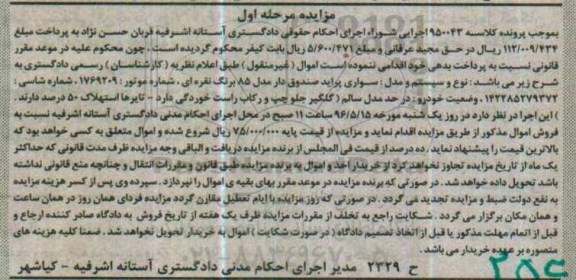 مزایده مرحله اول
بموجب پرونده کلاسه ۹۵۰۰۴۳ اجرایی شورا، اجرای احکام حقوقی دادگستری آستانه اشرفیه قربان حسن نژاد به پرداخت مبلغ
۱۱۲/۰۰۹/۴۳۴ ریال در حق مجید عرفانی و مبلغ ۵/۶۰۰/۴۷۱ ریال بابت کیفر محکوم گردیده است. چون محکوم علیه در موعد مقرر
قانونی نسبت به پرداخت بدهی خود اقدامی ننموده است اموال (غیرمنقول) طبق اعلام نظریه (کارشناسان) رسمی دادگستری به
شرح زیر می باشد: نوع و سیستم و مدل: سواری پراید صندوق دار مدل ۸۵ رنگ نقره ای، شماره موتور: ۱۷۶۹۲۰۹، شماره شاسی:
۱۴۲۲۸۵۲۷۹۳۷۲، وضعیت خودرو: در حد مدل سالم (گلگیر جلو چپ و رکاب راست خوردگی دارد) - تایرها استهلاک ۵۰ درصد دارند.
) این اجرا در نظر دارد در روز یک شنبه مورخه ۹۶/۵/۱۵ ساعت ۱۱ صبح در محل اجرای احکام مدنی دادگستری آستانه اشرفیه نسبت به
فروش اموال مذکور از طریق مزایده اقدام نماید و مزایده از قیمت پایه ۷۵/۰۰۰/۰۰۰ ریال شروع شده و اموال متعلق به کسی خواهد بود که
بالاترین قیمت را پیشنهاد نماید. ده درصد از قیمت فی المجلس از برنده مزایده دریافت و الباقی وجه مزایده ظرف مدت قانونی که حداکثر
یک ماه از تاریخ مزایده تجاوز نخواهد کرد از خریدار اخذ و اموال به برنده مزایده طبق قانون و مقررات انتقال و چنانچه منع قانونی نداشته
باشد تحویل داده خواهد شد. در صورتی که برنده مزایده در موعد مقرر بهای بقیه ی اموال را نپردازد. سپرده وی پس از کسر هزینه مزایده
به نفع دولت ضبط و مزایده تجدید می گردد. در صورتی که روز مزایده با ایام تعطیل مقارن گردد مزایده فردای همان روز در همان ساعت
و همان مکان برگزار می گردد. شکایت راجع به تخلف از مقررات مزایده ظرف یک هفته از تاریخ فروش به دادگاه صادر کننده ارجاع و
قبل از اتمام مهلت مذکور یا قبل از اتخاذ تصمیم دادگاه (در صورت شکایت) اموال به خریدار تحویل نخواهد شد. ضمنا کلیه هزینه های
متصوره بر عهده خریدار می باشد.
ح ۲۳۲۹ مدیر اجرای احکام مدنی دادگستری آستانه اشرفیه - کیاشهر